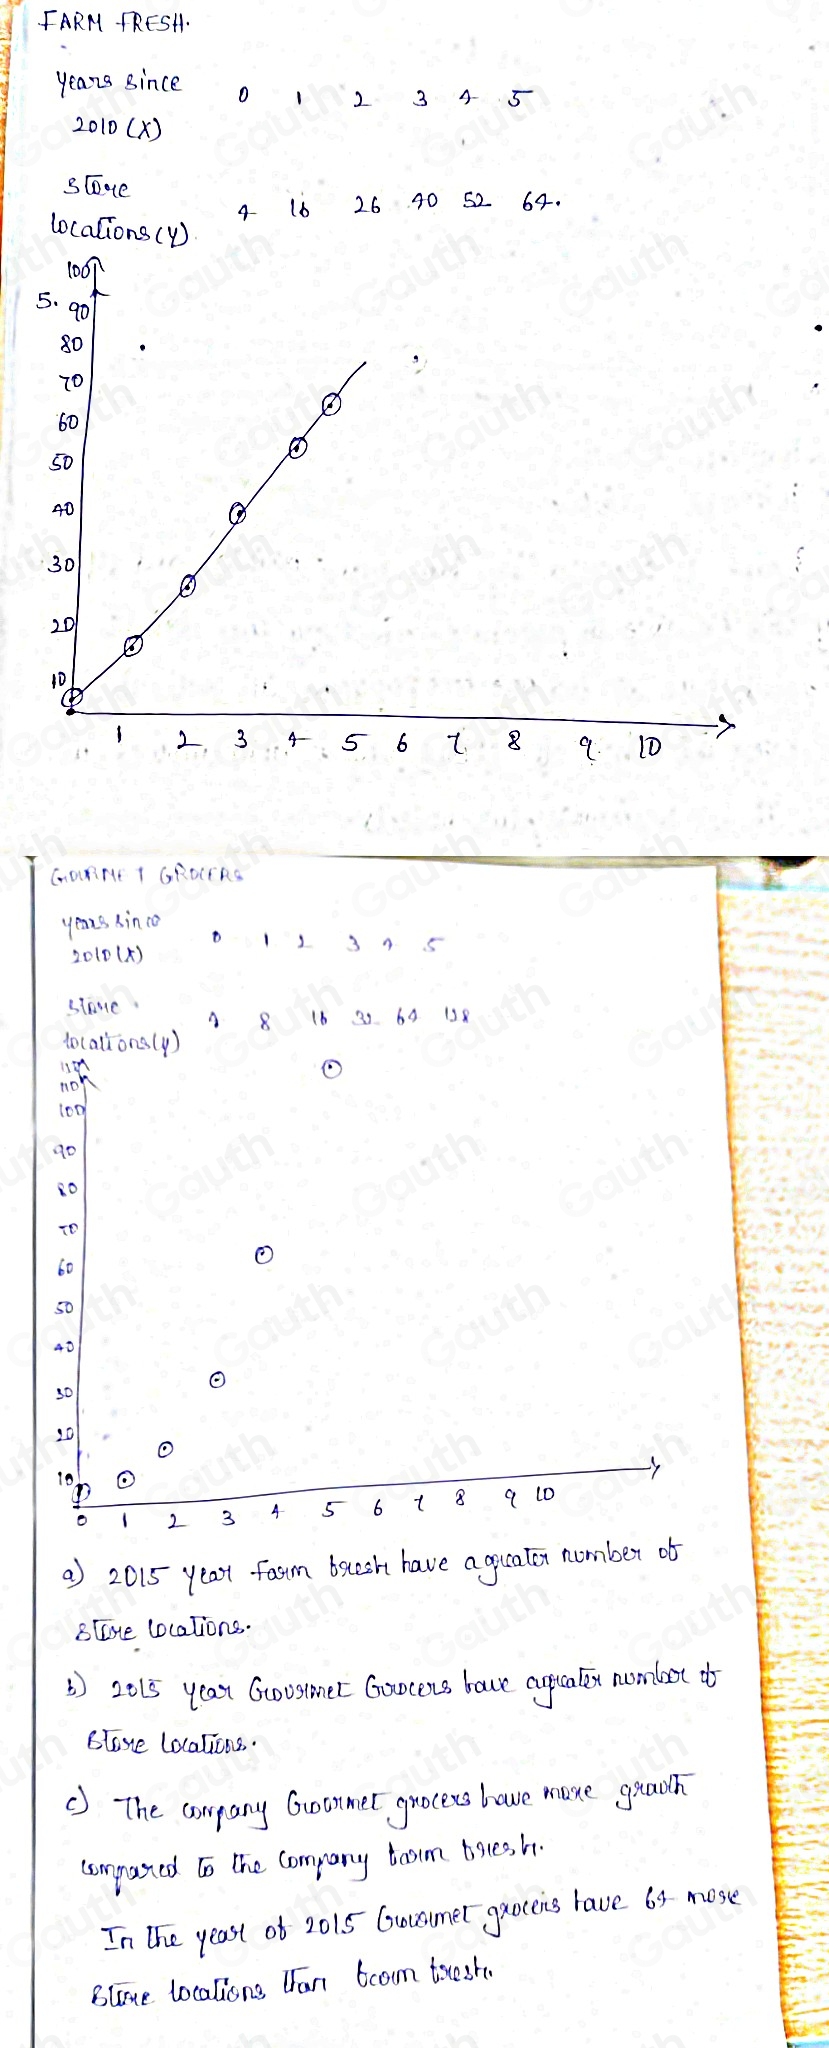 FARM FRESH.
Years since 0 1 2 3 4 5
2010 (X)
Store
locations (Y) 4 16 26 40 52 64.
100
5. 90
80
70
60
50
40
30
20
10
1 2 3 4 5 6 7 8 9 10
GOURMET GROCERS
years since 0 1 2 3 4 5
2010 (X)
Store
locations (y) 4 8 16 32 64 128
110
100
90
80
70
60
50
40
30
20
10
0 1 2 3 4 5 6 7 8 9 10
a) 2015 year farm fresh have a greater number of
store locations.
b) 2015 year Gourmet Grocers have a greater number of
Store Locations.
c) The company Gourmet grocers have more growth
compared to the company farm fresh.
In the year of 2015 Gourmet grocers have 64 more
Store locations than farm fresh.
Gauth